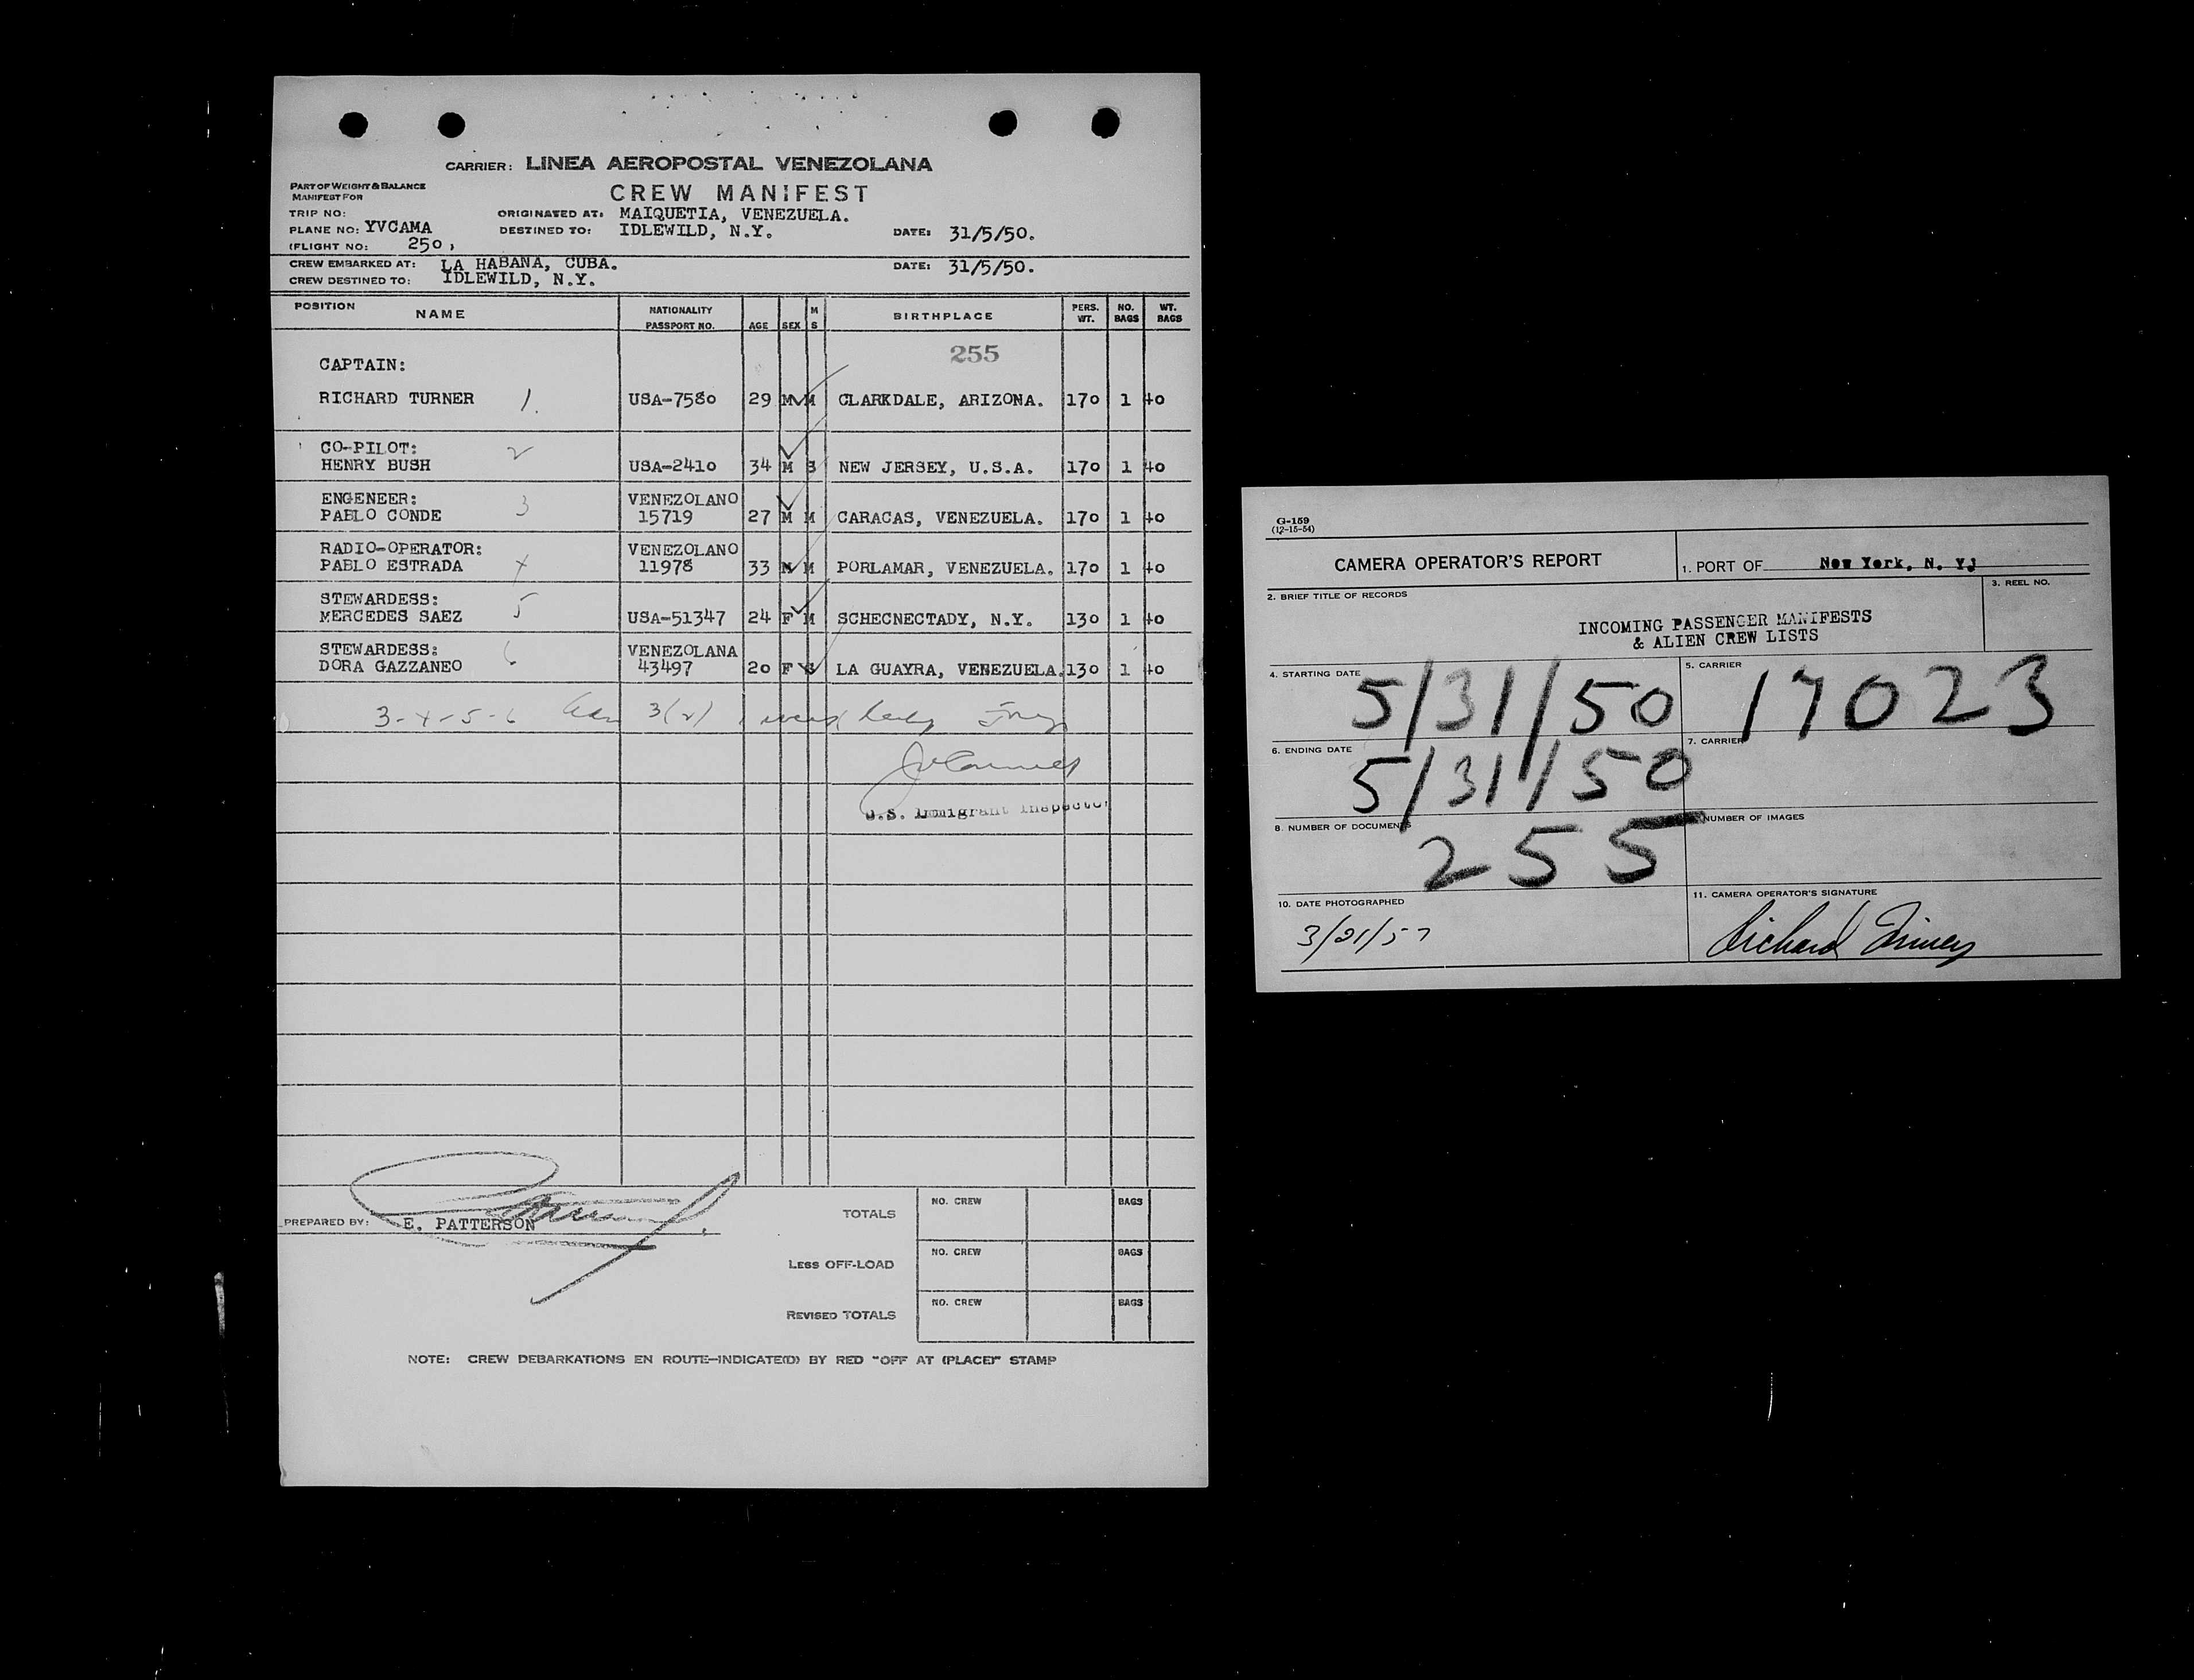 CARRIER: LINEA AEROPOSTAL VENEZOLANA
PART OF WEIGHT & BALANCE
MANIFEST FOR
CREW MANIFEST
TRIP NO: ORIGINATED AT: MAIQUETIA, VENEZUELA.
PLANE NO: YVCAMA DESTINED TO: IDLEWILD, N.Y. DATE: 31/5/50.
(FLIGHT NO: 250,
CREW EMBARKED AT: LA HABANA, CUBA. DATE: 31/5/50.
CREW DESTINED TO: IDLEWILD, N.Y.
POSITION NAME NATIONALITY PASSPORT NO. AGE SEX M S BIRTHPLACE PERS. WT. NO. BAGS WT. BAGS
255
CAPTAIN:
RICHARD TURNER 1. USA-7580 29 M M CLARKDALE, ARIZONA. 170 1 40
CO-PILOT: 2
HENRY BUSH USA-2410 34 M S NEW JERSEY, U.S.A. 170 1 40
ENGENEER: 3 VENEZOLANO
PABLO CONDE 15719 27 M M CARACAS, VENEZUELA. 170 1 40
RADIO-OPERATOR: VENEZOLANO
PABLO ESTRADA 4 11978 33 M M PORLAMAR, VENEZUELA. 170 1 40
STEWARDESS: 5
MERCEDES SAEZ USA-51347 24 F M SCHECNECTADY, N.Y. 130 1 40
STEWARDESS: 6 VENEZOLANA
DORA GAZZANEO 43497 20 F S LA GUAYRA, VENEZUELA. 130 1 40
3-4-5-6 3(2)
U.S. Immigrant Inspector
PREPARED BY: E. PATTERSON
TOTALS NO. CREW BAGS
LESS OFF-LOAD NO. CREW BAGS
REVISED TOTALS NO. CREW BAGS
NOTE: CREW DEBARKATIONS EN ROUTE—INDICATE(D) BY RED "OFF AT (PLACE)" STAMP
G-159
(12-15-54)
CAMERA OPERATOR'S REPORT
1. PORT OF New York, N. Y.
2. BRIEF TITLE OF RECORDS
3. REEL NO.
INCOMING PASSENGER MANIFESTS
& ALIEN CREW LISTS
4. STARTING DATE 5/31/50
5. CARRIER 17023
6. ENDING DATE 5/31/50
7. CARRIER
8. NUMBER OF DOCUMENTS 255
NUMBER OF IMAGES
10. DATE PHOTOGRAPHED
3/21/57
11. CAMERA OPERATOR'S SIGNATURE
Richard